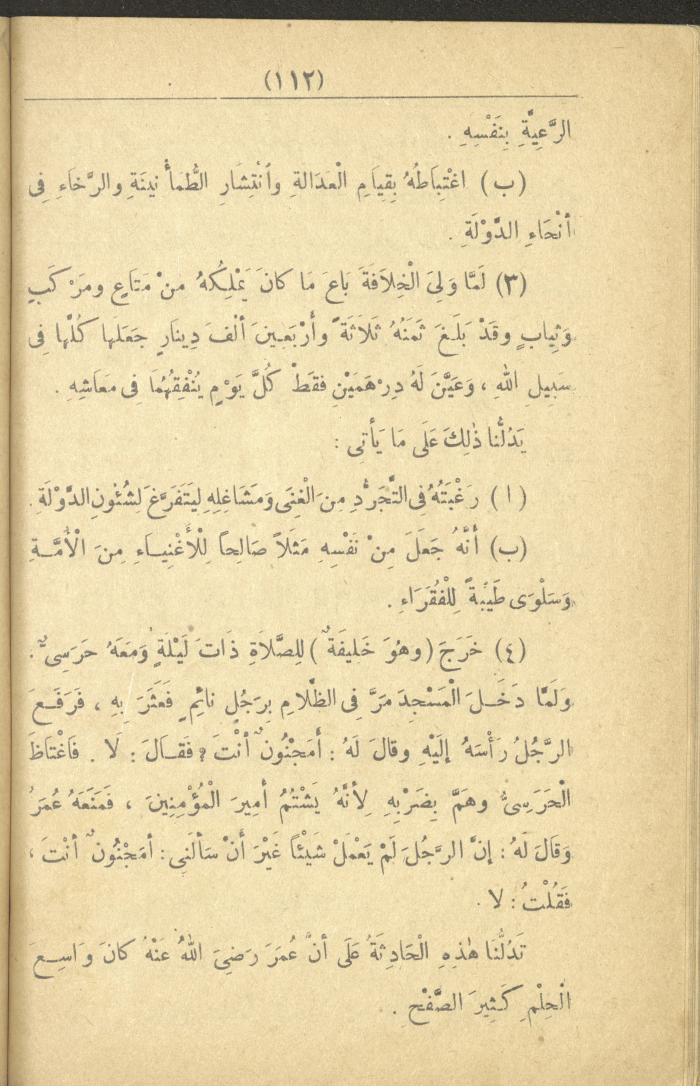 (١١٢)
الرَّعِيَّةِ بِنَفْسِهِ .
(ب) اغْتِبَاطُهُ بِقِيَامِ الْعَدَالَةِ وَٱنْتِشَارِ الطُّمَأْنِينَةِ وَالرَّخَاءِ فِى
أَنْحَاءِ الدَّوْلَةِ .
(٣) لَمَّا وَلِىَ الْخِلَافَةَ بَاعَ مَا كَانَ يَمْلِكُهُ مِنْ مَتَاعٍ ومَرْكَبٍ
وَثِيابٍ وقَدْ بَلَغَ ثَمَنُهُ ثَلَاثَةً وأَرْبَعِينَ أَلْفَ دِينَارٍ جَعَلَهَا كُلَّهَا فِى
سَبِيلِ اللهِ ، وَعَيَّنَ لَهُ دِرْهَمَيْنِ فَقَطْ كُلَّ يَوْمٍ يُنْفِقُهُمَا فِى مَعَاشِهِ .
يَدُلُّنَا ذٰلِكَ عَلَى مَا يَأْتِى :
(ا) رَغْبَتُهُ فِى التَّجَرُّدِ مِنَ الْغِنَى وَمَشَاغِلِهِ لِيَتَفَرَّغَ لِشُئُونِ الدَّوْلَةِ .
(ب) أَنَّهُ جَعَلَ مِنْ نَفْسِهِ مَثَلاً صَالِحاً لِلْأَغْنِيَاءِ مِنَ الْأُمَّةِ
وَسَلْوَى طَيِّبَةً لِلْفُقَرَاءِ .
(٤) خَرَجَ (وهُوَ خَلِيفَةٌ) لِلصَّلَاةِ ذَاتَ لَيْلَةٍ وَمَعَهُ حَرَسِىٌّ .
وَلَمَّا دَخَلَ الْمَسْجِدَ مَرَّ فِى الظَّلَامِ بِرَجُلٍ نَائِمٍ فَعَثَرَ بِهِ ، فَرَفَعَ
الرَّجُلُ رَأْسَهُ إِلَيْهِ وقَالَ لَهُ : أَمَجْنُونٌ أَنْتَ ؟ فَقَالَ : لَا . فَاغْتَاظَ
الْحَرَسِىُّ وهَمَّ بِضَرْبِهِ لِأَنَّهُ يَشْتُمُ أَمِيرَ الْمُؤْمِنِينَ ، فَمَنَعَهُ عُمَرُ
وَقَالَ لَهُ : إِنَّ الرَّجُلَ لَمْ يَعْمَلْ شَيْئًا غَيْرَ أَنْ سَأَلَنِى : أَمَجْنُونٌ أَنْتَ ،
فَقُلْتُ : لَا .
تَدُلُّنَا هٰذِهِ الْحَادِثَةُ عَلَى أَنَّ عُمَرَ رَضِىَ اللهُ عَنْهُ كَانَ وَاسِعَ
الْحِلْمِ كَثِيرَ الصَّفْحِ .